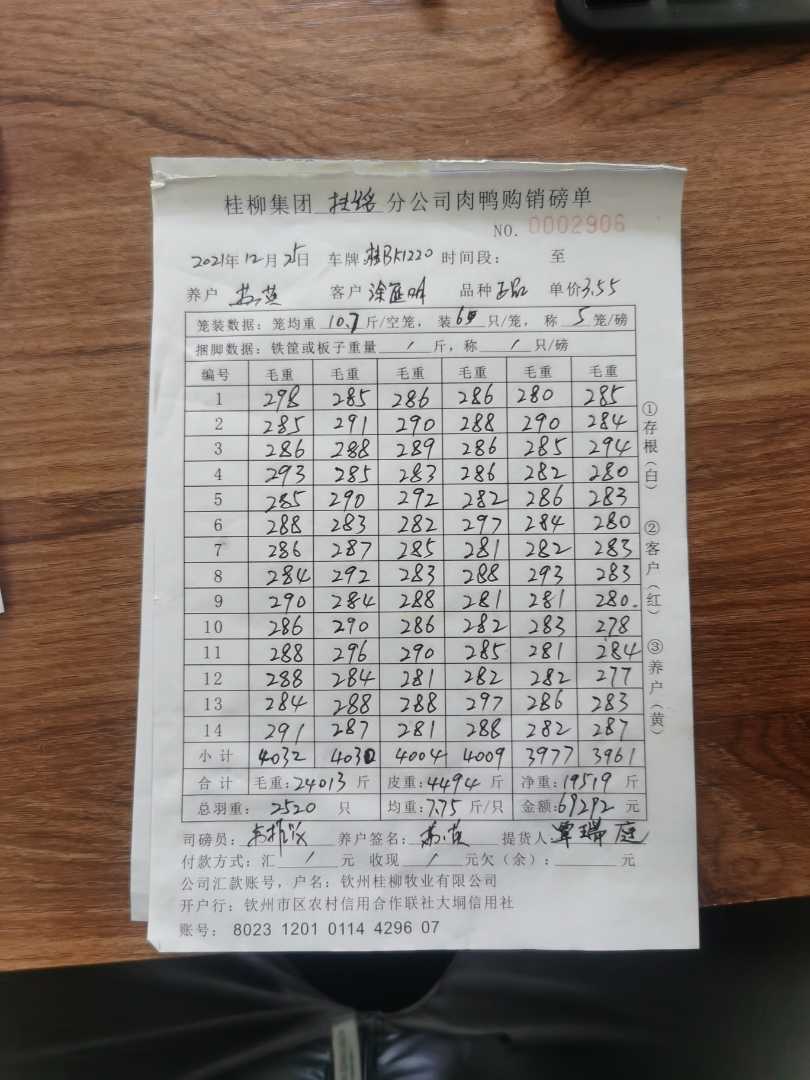 桂柳集团 挂路 分公司肉鸭购销磅单
NO. 0002906
2021年12月25日 车牌:桂BK1220 时间段: 至
养户 苏英 客户 涂 品种 正品 单价3.55
笼装数据:笼均重 10.7 斤/空笼,装 6 只/笼,称 5 笼/磅
捆脚数据:铁筐或板子重量 / 斤,称 / 只/磅
编号 毛重 毛重 毛重 毛重 毛重 毛重
1 298 285 286 286 280 285
2 285 291 290 288 290 284
3 286 288 289 286 285 294
4 293 285 283 286 282 280
5 285 290 292 282 286 283
6 288 283 282 297 284 280
7 286 287 285 281 282 283
8 284 292 283 288 293 283
9 290 284 288 281 281 280.
10 286 290 286 282 283 278
11 288 296 290 285 281 284
12 288 284 281 282 282 277
13 284 288 288 297 286 283
14 291 287 281 288 282 287
小计 4032 4030 4004 4009 3977 3961
合计 毛重:24013 斤 皮重:4494 斤 净重:19519 斤
总羽重: 2520 只 均重:7.75 斤/只 金额:69292 元
司磅员: 养户签名: 苏英 提货人:覃瑞庭
付款方式:汇 / 元 收现 / 元欠(余): 元
公司汇款账号,户名:钦州桂柳牧业有限公司
开户行:钦州市区农村信用合作联社大垌信用社
账号: 8023 1201 0114 4296 07
①存根(白)
②客户(红)
③养户(黄)